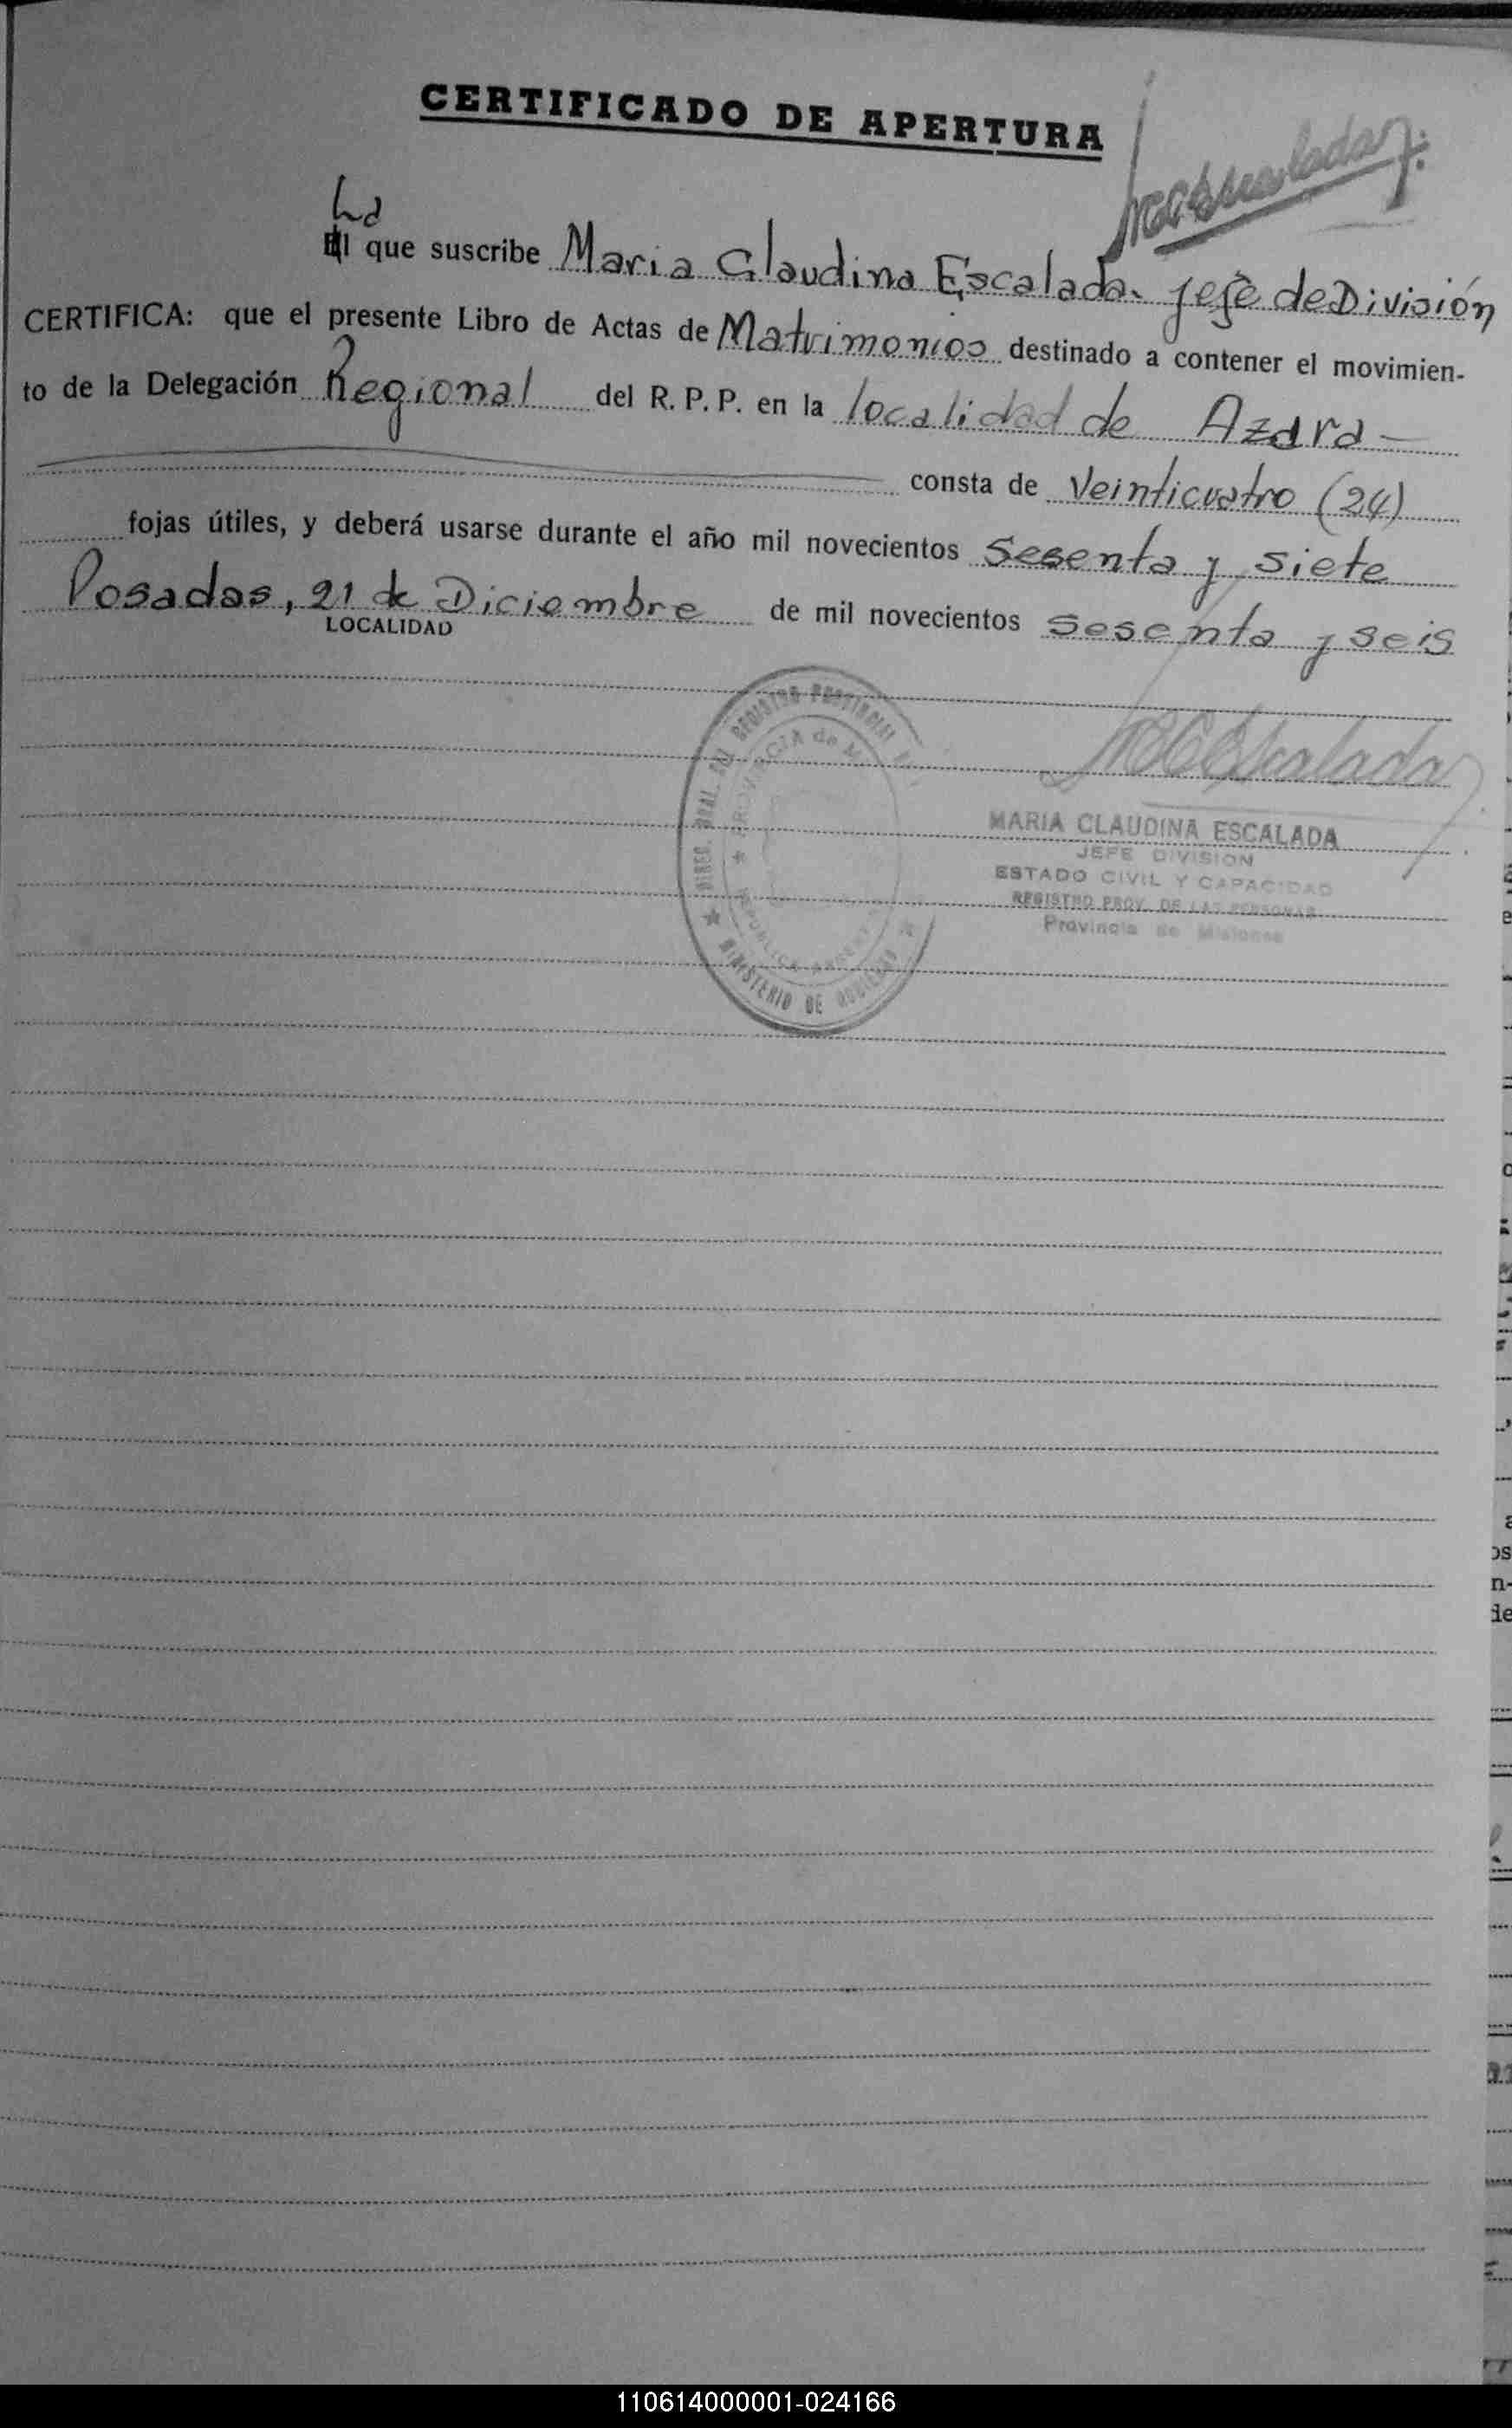 CERTIFICADO DE APERTURA
MCEscalada
La
El que suscribe Maria Claudina Escalada. jefe de División
CERTIFICA: que el presente Libro de Actas de Matrimonios destinado a contener el movimien-
to de la Delegación Regional del R. P. P. en la localidad de Azara —
consta de Veinticuatro (24)
fojas útiles, y deberá usarse durante el año mil novecientos Sesenta y siete
Posadas, 21 de Diciembre de mil novecientos Sesenta y seis
LOCALIDAD
DIREC. GRAL. DEL REGISTRO PROVINCIAL
PROVINCIA de
REPUBLICA
MINISTERIO DE GOBIERNO
MCEscalada
MARIA CLAUDINA ESCALADA
JEFE DIVISION
ESTADO CIVIL Y CAPACIDAD
REGISTRO PROV. DE LAS PERSONAS
Provincia de Misiones
110614000001-024166